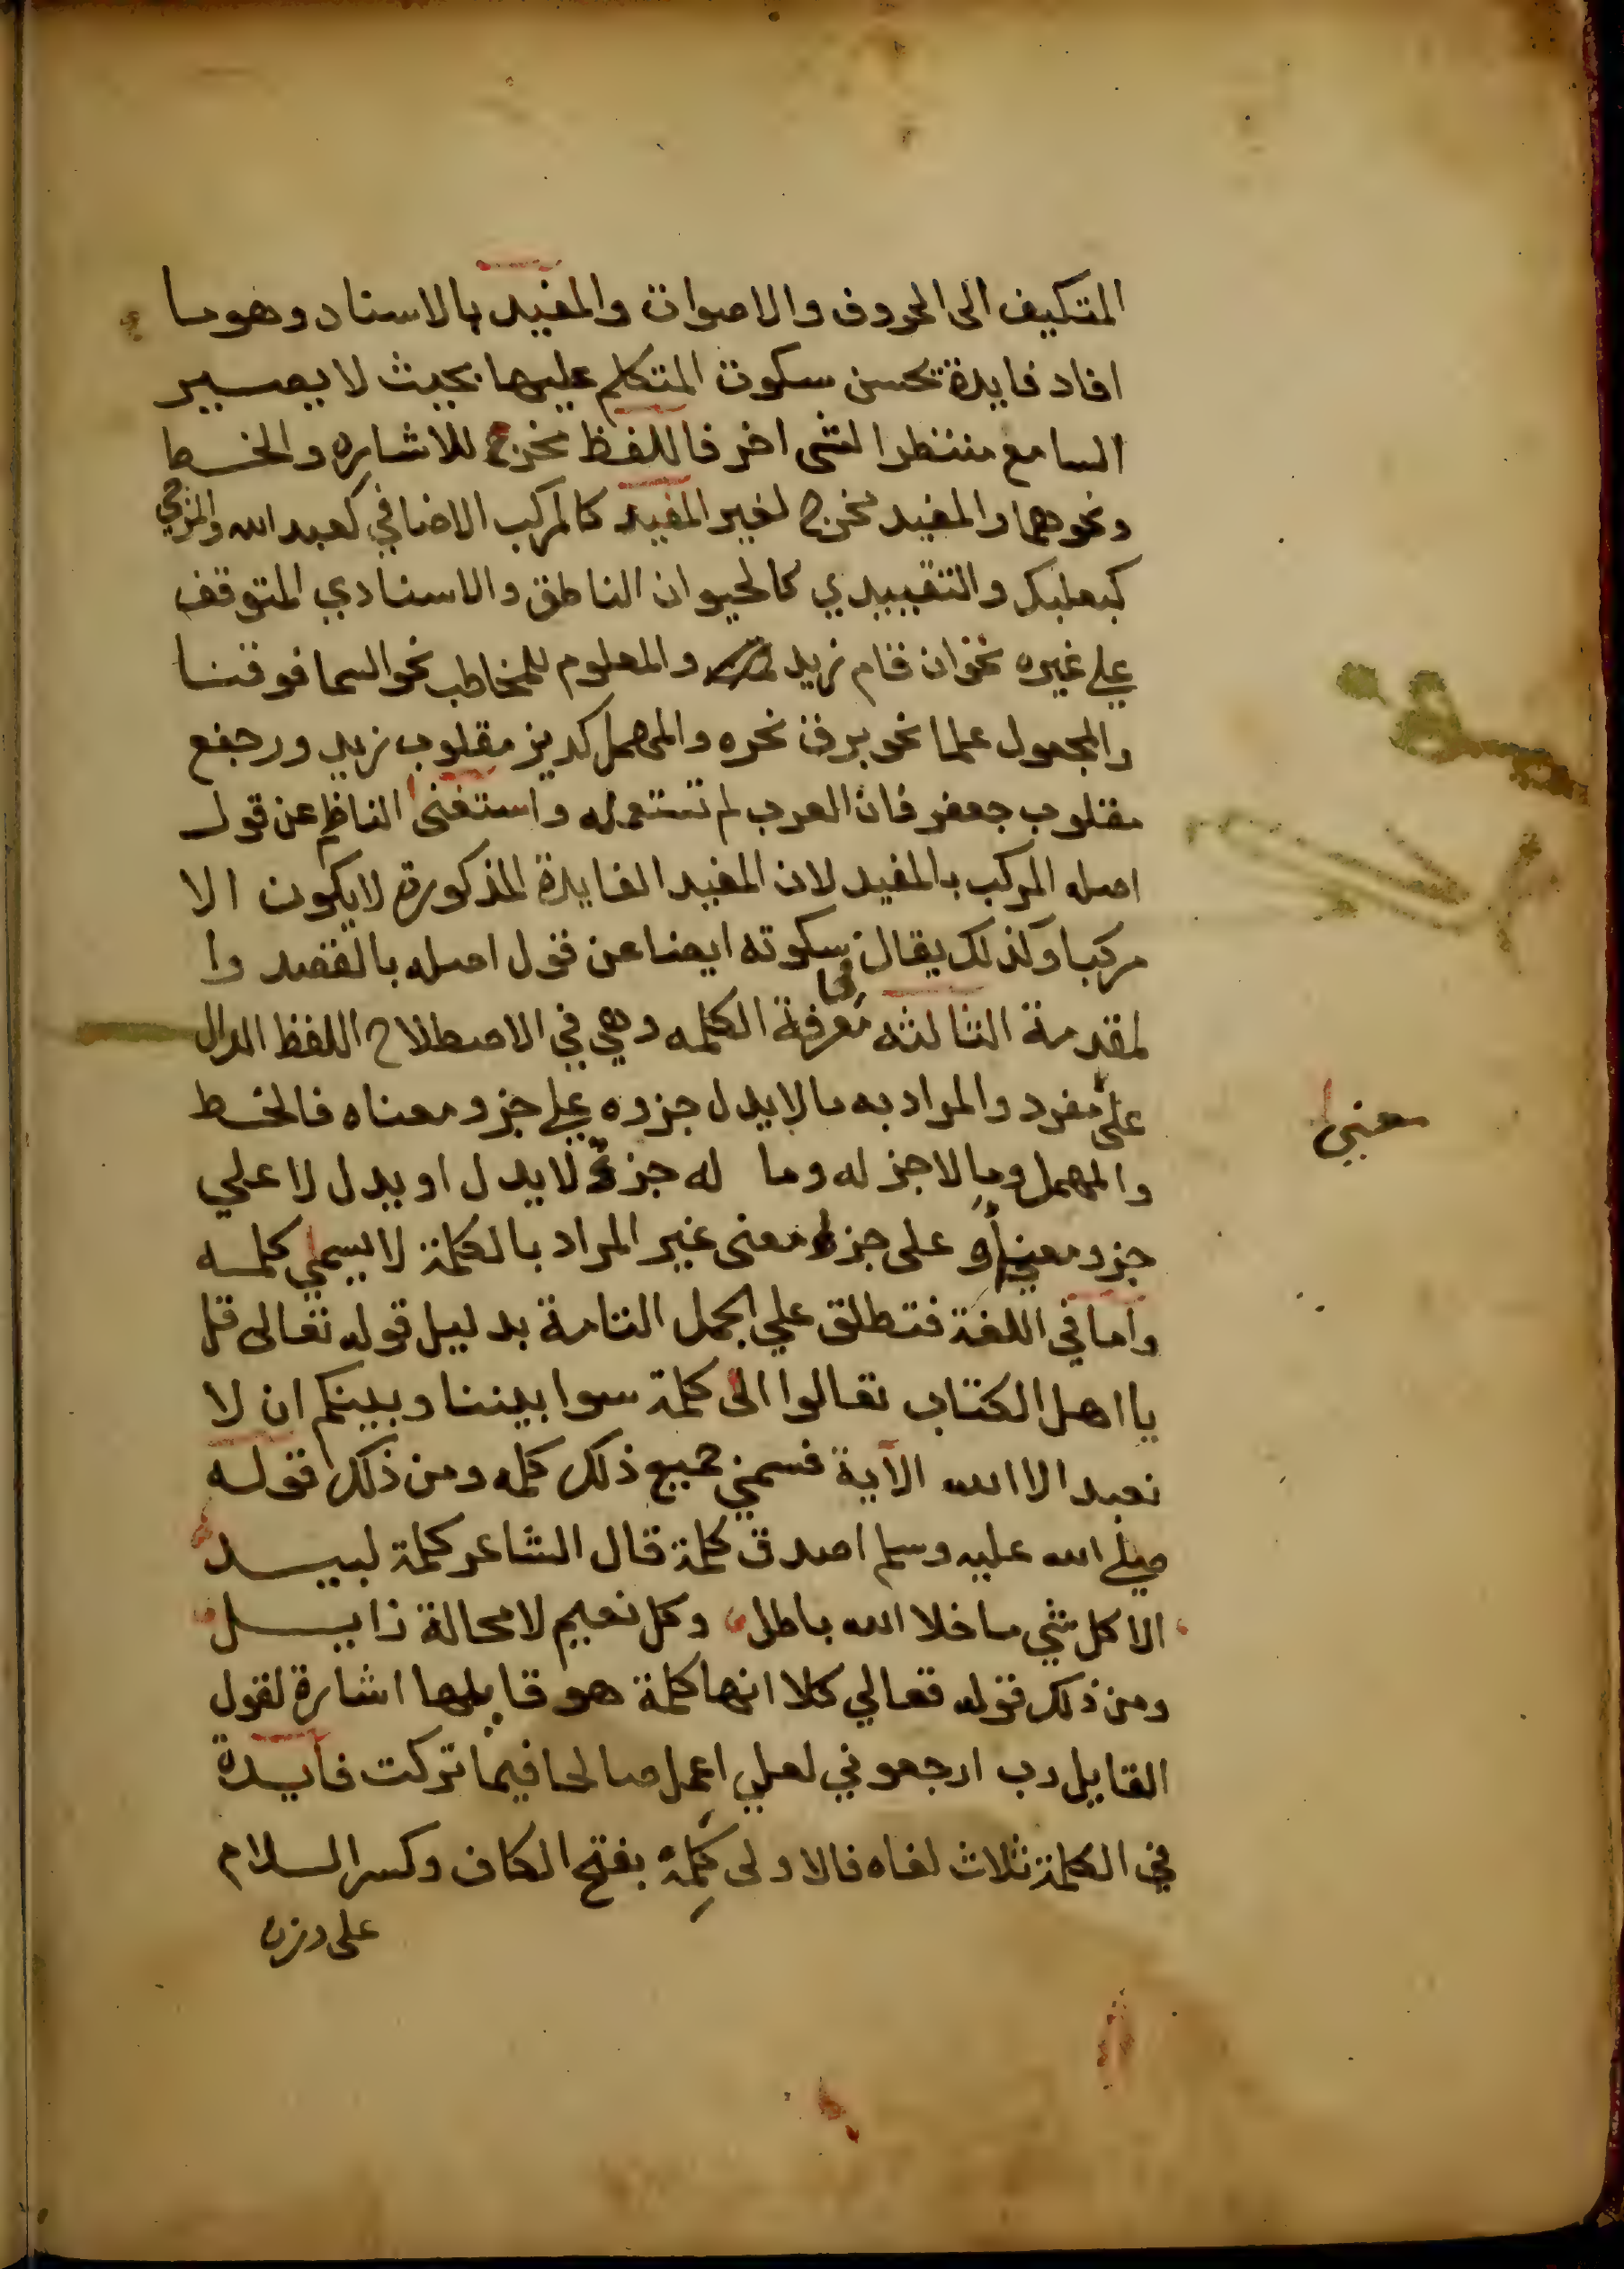 المتكيف الى الحروف والاصوات والمفيد بالاسناد وهو ما
افاد فايدة يحسن سكوت المتكلم عليها بحيث لا يصير
السامع منتظرا لشى اخر فاللفظ مخرج للاشاره والخط
ونحوهما والمفيد مخرج لغير المفيد كالمركب الاضافي كعبد الله والمزجي
كبعلبك والتقييدي كالحيوان الناطق والاسنادي المتوقف
علي غيره نحو ان قام زيد والمعلوم للمخاطب نحو السما فوقنا
والمجعول علما نحو برق نحره والمهمل كديز مقلوب زيد ورجفع
مقلوب جعفر فان العرب لم تستعمله واستغنى الناظم عن قول
اصله المركب بالمفيد لان المفيد الفايدة المذكورة لا يكون الا
مركبا وكذلك يقال في سكوته ايضا عن قول اصله بالقصد وا
لمقدمة الثالثه معرفة الكلمه وهي في الاصطلاح اللفظ الدال
على مفرد والمراد به ما لا يدل جزوه علي جزو معناه فالخط
معني
والمهمل وما لا جز له وما له جزء لا يدل او يدل لا علي
جزو معناه او على جزء معنى غير المراد بالكلمة لا يسمي كلمه
واما في اللغة فتطلق علي الجمل التامة بدليل قوله تعالى قل
يا اهل الكتاب تعالوا الى كلمة سوا بيننا وبينكم ان لا
نعبد الا الله الآية فسمي جميع ذلك كلمه ومن ذلك قوله
صلي الله عليه وسلم اصدق كلمة قال الشاعر كلمة لبيد
الا كل شي ما خلا الله باطل وكل نعيم لا محالة زايل
ومن ذلك قوله تعالي كلا انها كلمة هو قايلها اشارة لقول
القايل رب ارجعوني لعلي اعمل صالحا فيما تركت فايدة
في الكلمة ثلاث لغاه فالاولى كَلِمة بفتح الكاف وكسر اللام
على وزن